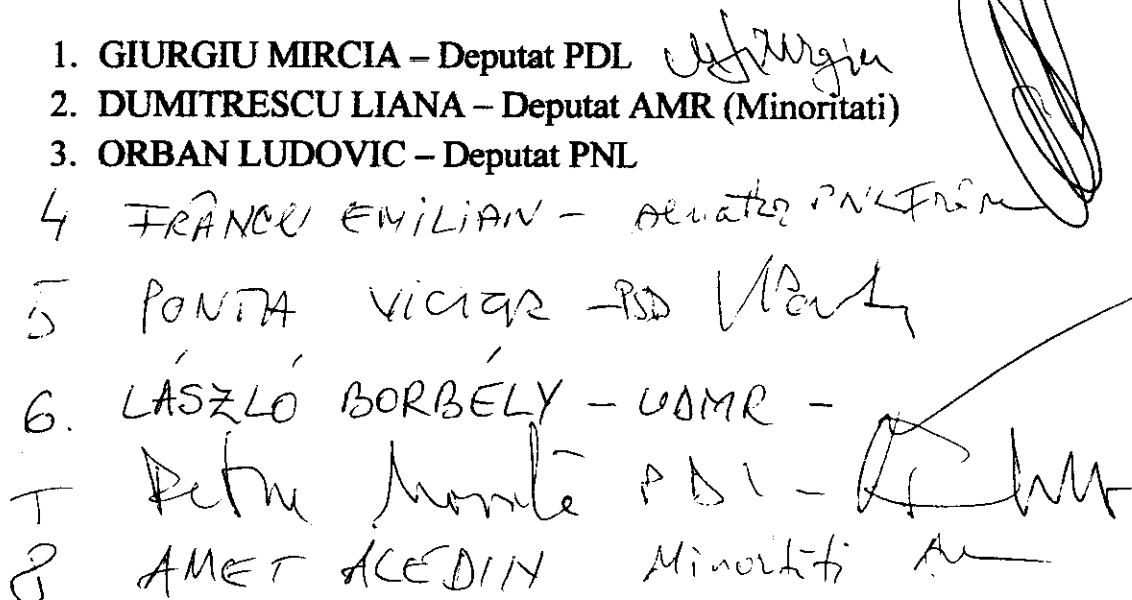 1. GIURGIU MIRCIA – Deputat PDL
2. DUMITRESCU LIANA – Deputat AMR (Minoritati)
3. ORBAN LUDOVIC – Deputat PNL
4 FRÂNCU EMILIAN – senator PNL
5 PONTA VICTOR – PSD
6. LÁSZLÓ BORBÉLY – UDMR –
7 Petru Movilă PDL –
8 AMET ALEDIN Minorități